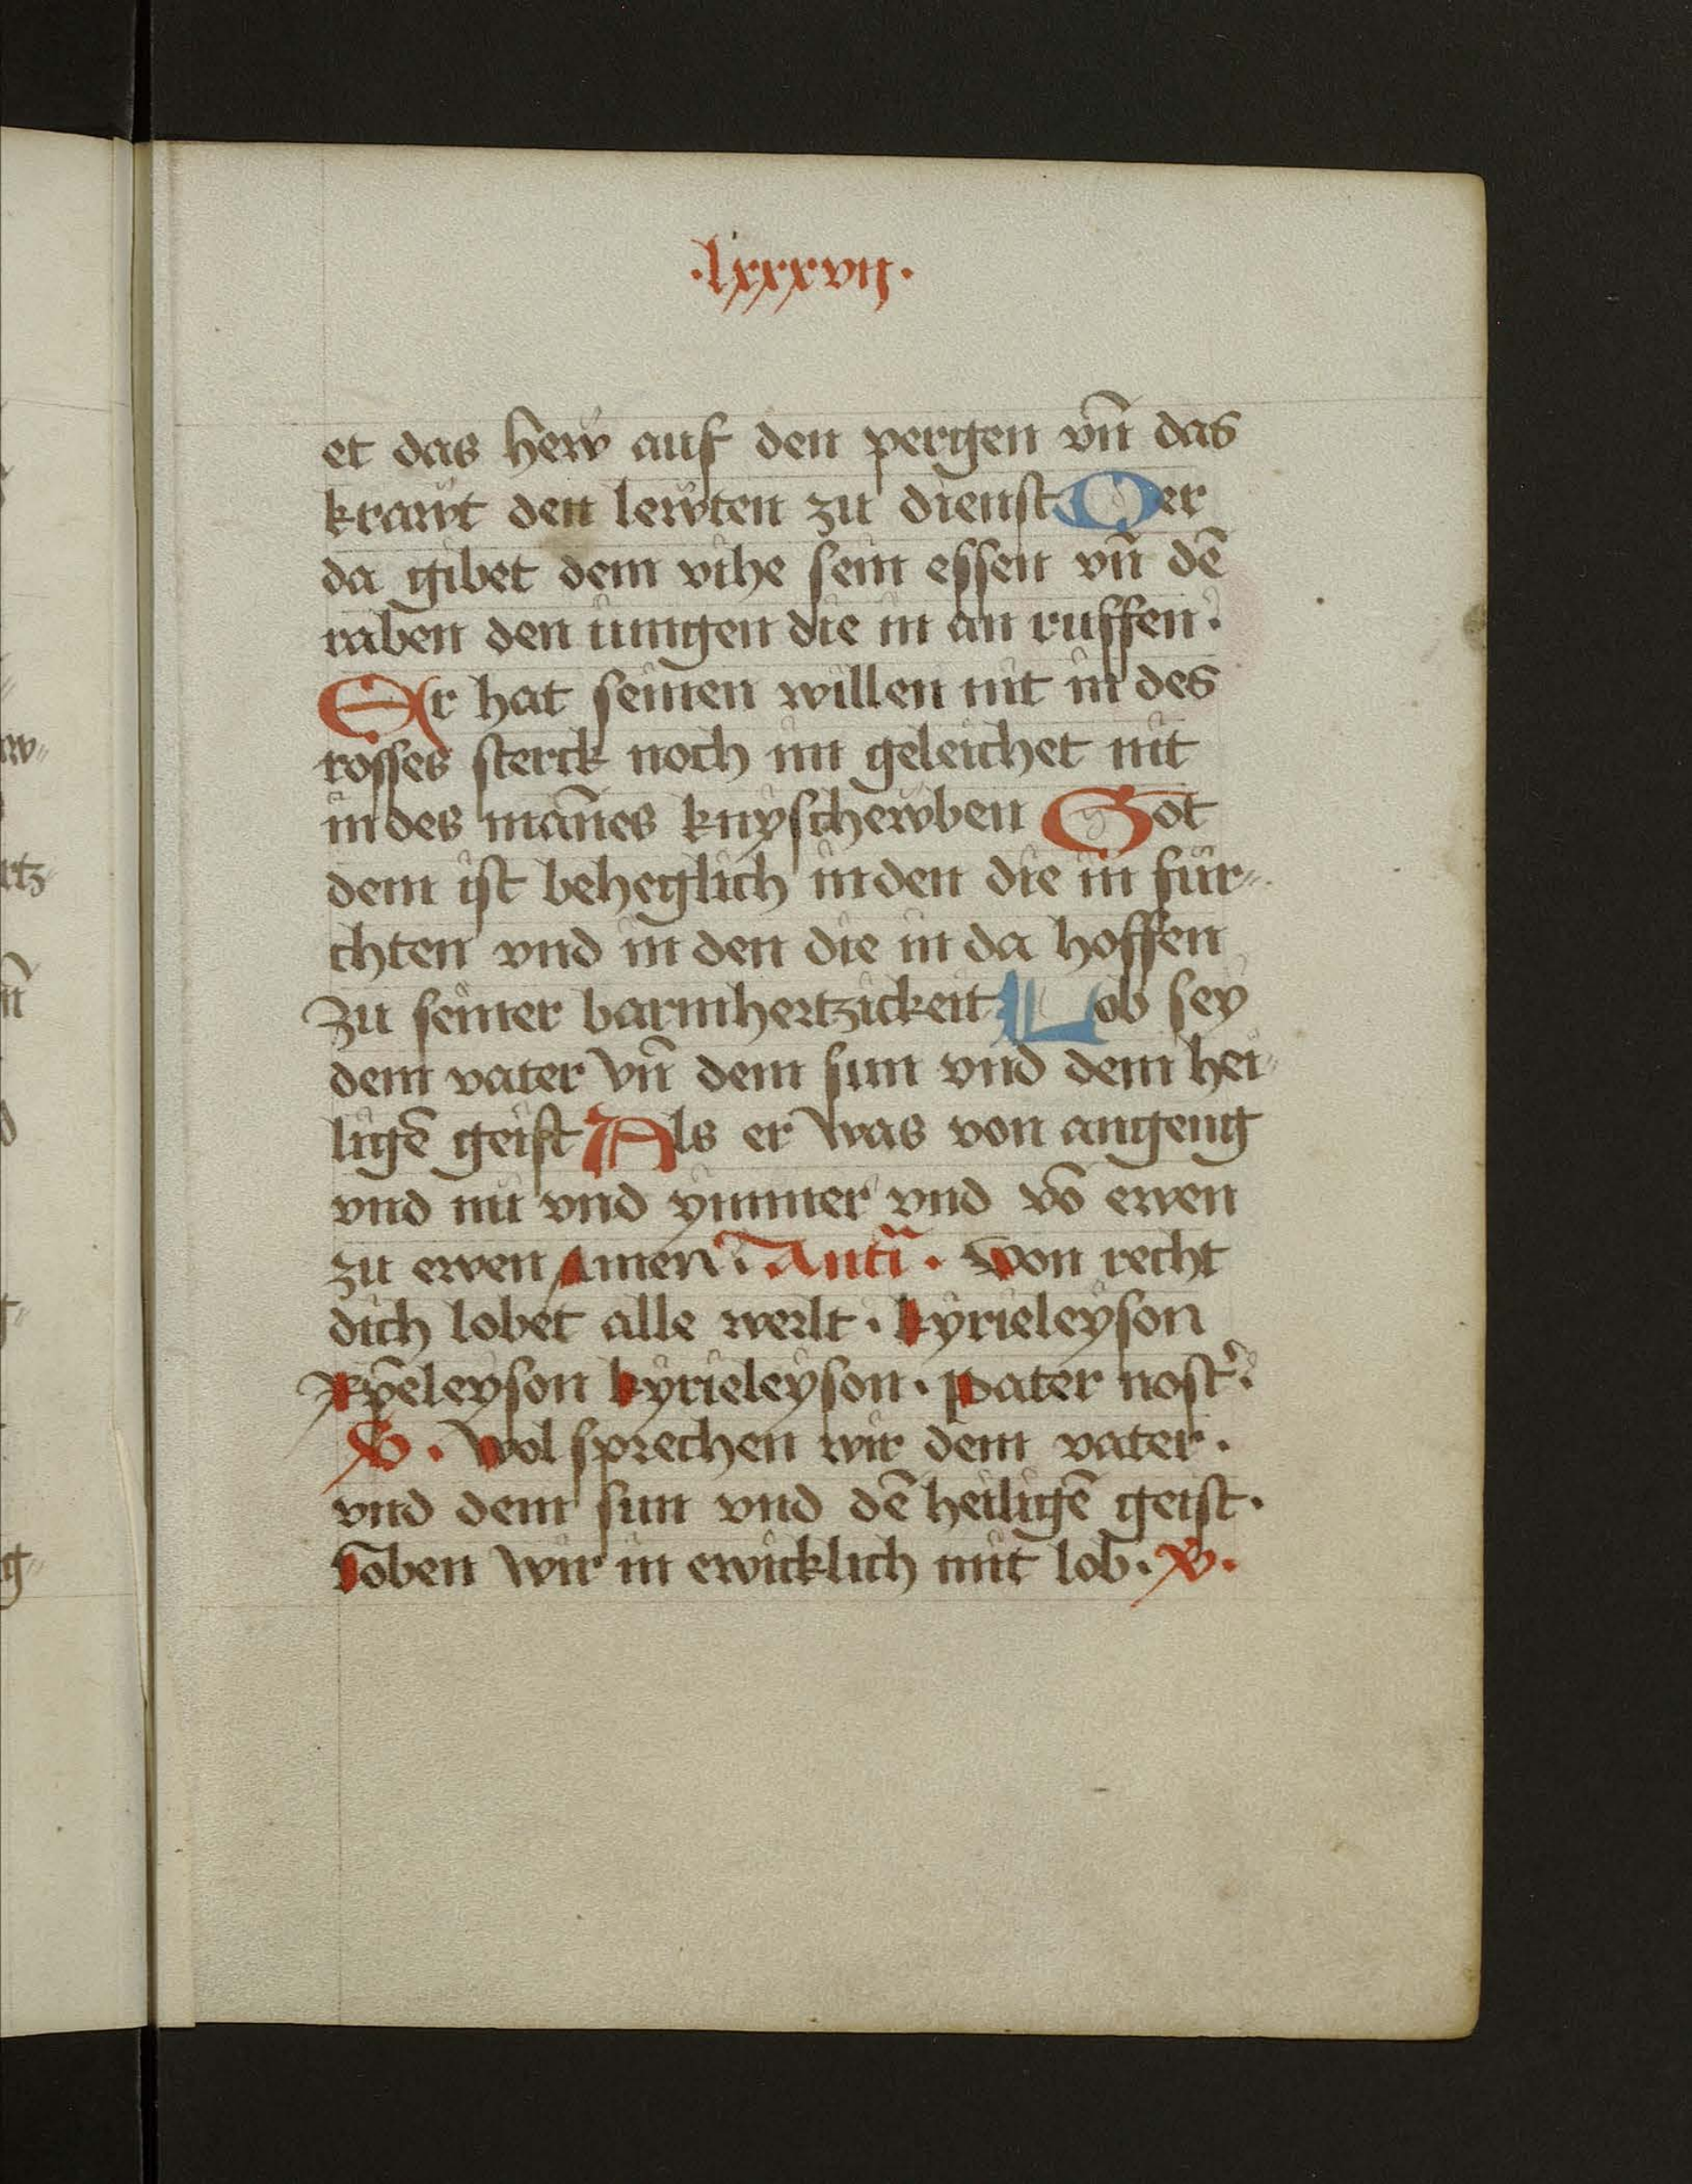 ·lxxxvij·
et das hew auf den pergen vn̄ das
krawt den lewten zu dienst Der
da gibet dem vihe sein essen vn̄ dē
raben den iungen die in an ruffen·
Er hat seinen willen nit in des
rosses sterck noch im geleichet nit
in des mān̄es knyschewben Got
dem ist beheglich in den die in für⸗
chten vnd in den die in da hoffen
zu seiner barmhertzickeit Lob sey
dem vater vn̄ dem sun vnd dem hei⸗
ligē geist Als er was von angeng
vnd nu vnd ymmer vnd vō ewen
zu ewen Amen· Antī· Von recht
dich lobet alle werlt· kyrieleyson
Xp̄eleyson kyrieleyson· pater nost̾·
V· Wol sprechen wir dem vater·
vnd dem sun vnd dē heiligē geist·
Loben wir in ewicklich mit lob· V·
w⸗
rtz⸗
n̄
g⸗